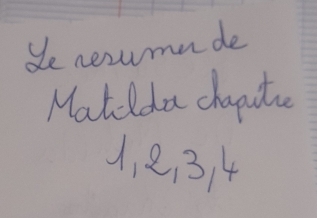 Le resumer de
Matilda chapitre
1,2,3,4